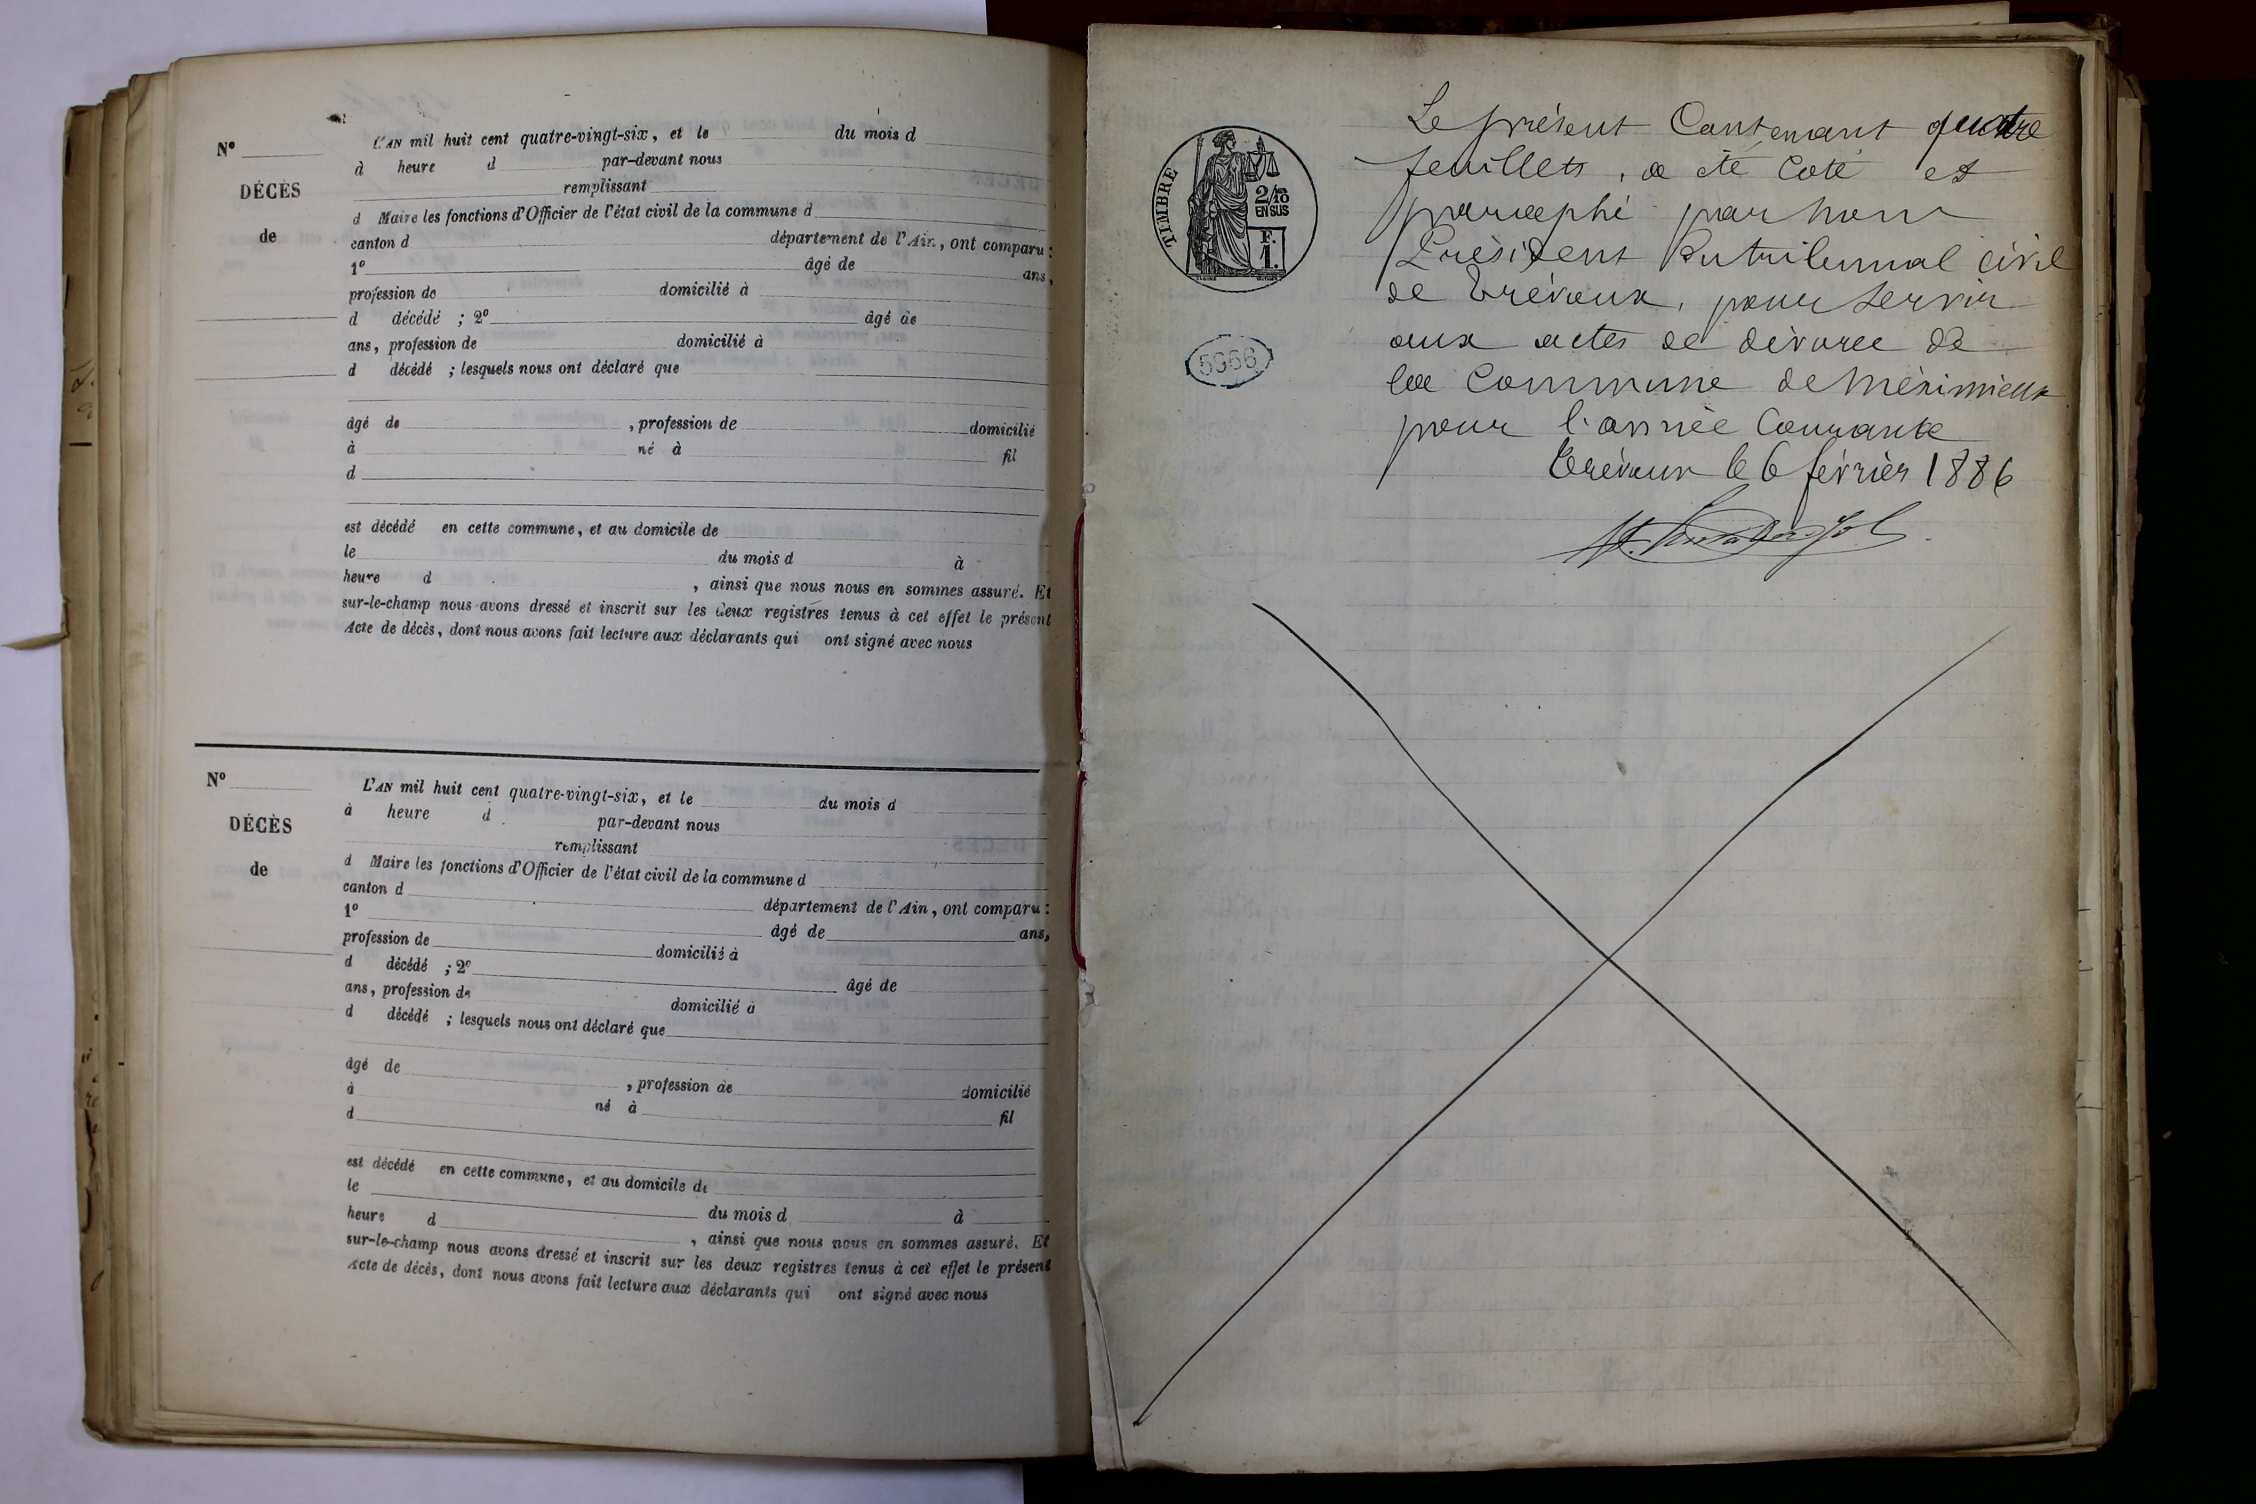 N° L'AN mil huit cent quatre-vingt-six, et le du mois d
à heure d par-devant nous
DÉCÈS remplissant
d Maire les fonctions d'Officier de l'état civil de la commune d
de canton d département de l'Ain, ont comparu :
1° âgé de ans,
profession de domicilié à
d décédé ; 2° âgé de
ans, profession de domicilié à
d décédé ; lesquels nous ont déclaré que
âgé de , profession de domicilié
à né à fil
d
est décédé en cette commune, et au domicile de
le du mois d à
heure d , ainsi que nous nous en sommes assuré. Et
sur-le-champ nous avons dressé et inscrit sur les deux registres tenus à cet effet le présent
Acte de décès, dont nous avons fait lecture aux déclarants qui ont signé avec nous
N° L'AN mil huit cent quatre-vingt-six, et le du mois d
à heure d par-devant nous
DÉCÈS remplissant
d Maire les fonctions d'Officier de l'état civil de la commune d
de canton d département de l'Ain, ont comparu :
1° âgé de ans,
profession de domicilié à
d décédé ; 2° âgé de
ans, profession de domicilié à
d décédé ; lesquels nous ont déclaré que
âgé de , profession de domicilié
à né à fil
d
est décédé en cette commune, et au domicile de
le du mois d à
heure d , ainsi que nous nous en sommes assuré. Et
sur-le-champ nous avons dressé et inscrit sur les deux registres tenus à cet effet le présent
Acte de décès, dont nous avons fait lecture aux déclarants qui ont signé avec nous
TIMBRE
2/10
EN SUS
F.
1.
5966
Le présent Contenant quatre
feuillets, a été Coté et
paraphé par nous
Président du tribunal civil
de Trévoux, pour servir
aux actes de divorce de
la Commune de Méximieux
pour l'année Courante
Trévoux le 6 février 1886